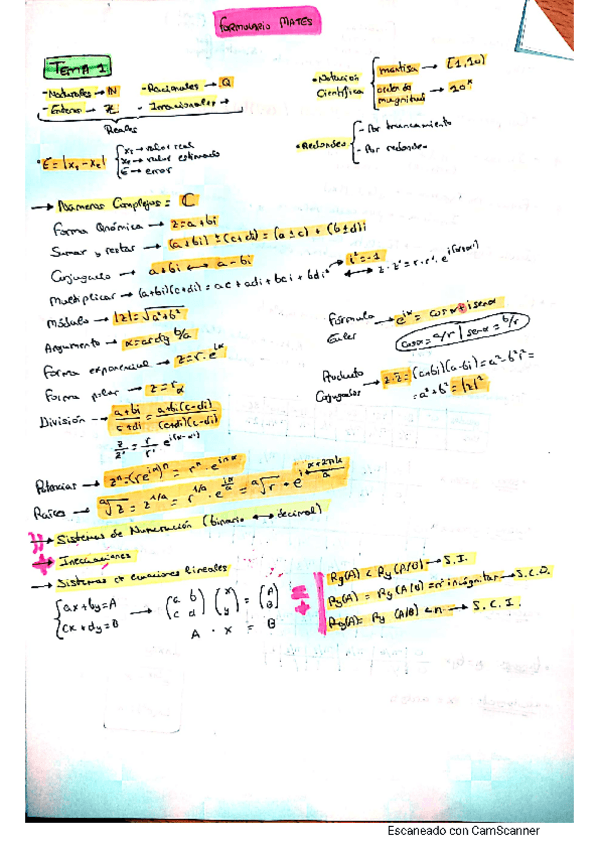 FORMULARIO MATES
TEMA 1
- Naturales → ℕ
- Racionales → Q
- Enteros → ℤ
- Irracionales →
Reales
• Notación Científica
mantisa → [1,10)
orden de magnitud → 10ˣ
• Redondeo
- Por truncamiento
- Por redondeo
• E = |x₁ - x₂|
x₁ → valor real
x₂ → valor estimado
E → error
→ Números Complejos = ℂ
Forma Binómica → z = a + bi
Sumar y restar → (a + bi) ± (c + di) = (a ± c) + (b ± d)i
Conjugado → a + bi ↔ a - bi
i² = -1
Multiplicar → (a+bi)(c+di) = ac + adi + bci + bdi² ↔ z · z' = r · r' · e^i(α+α')
Módulo → |z| = √a² + b²
Argumento → α = arctg b/a
Forma exponencial → z = r · e^iα
Forma polar → z = r_α
División → a+bi / c+di = a+bi(c-di) / (c+di)(c-di)
z/z' = r/r' e^i(α-α')
Fórmula Euler → e^iα = cosα + i senα
cosα = a/r | senα = b/r
Producto Conjugados → z · z̄ = (a+bi)(a-bi) = a² - b²i² =
= a² + b² = |z|²
Potencias → zⁿ = (re^iα)ⁿ = rⁿ · e^inα
Raíces → ᵃ√z = z^1/a = r^1/a · e^iα/a = ᵃ√r · e^i (α+2πk)/a
→ Sistemas de Numeración (binario ↔ decimal)
→ Inecuaciones
→ Sistemas de ecuaciones lineales
{ax + by = A
{cx + dy = B
→ (a b / c d) (x / y) = (A / B)
A · X = B
Rg(A) < Rg(A/B) → S.I.
Rg(A) = Rg(A/B) = nº incógnitas → S.C.D.
Rg(A) = Rg(A/B) < n → S.C.I.
Escaneado con CamScanner